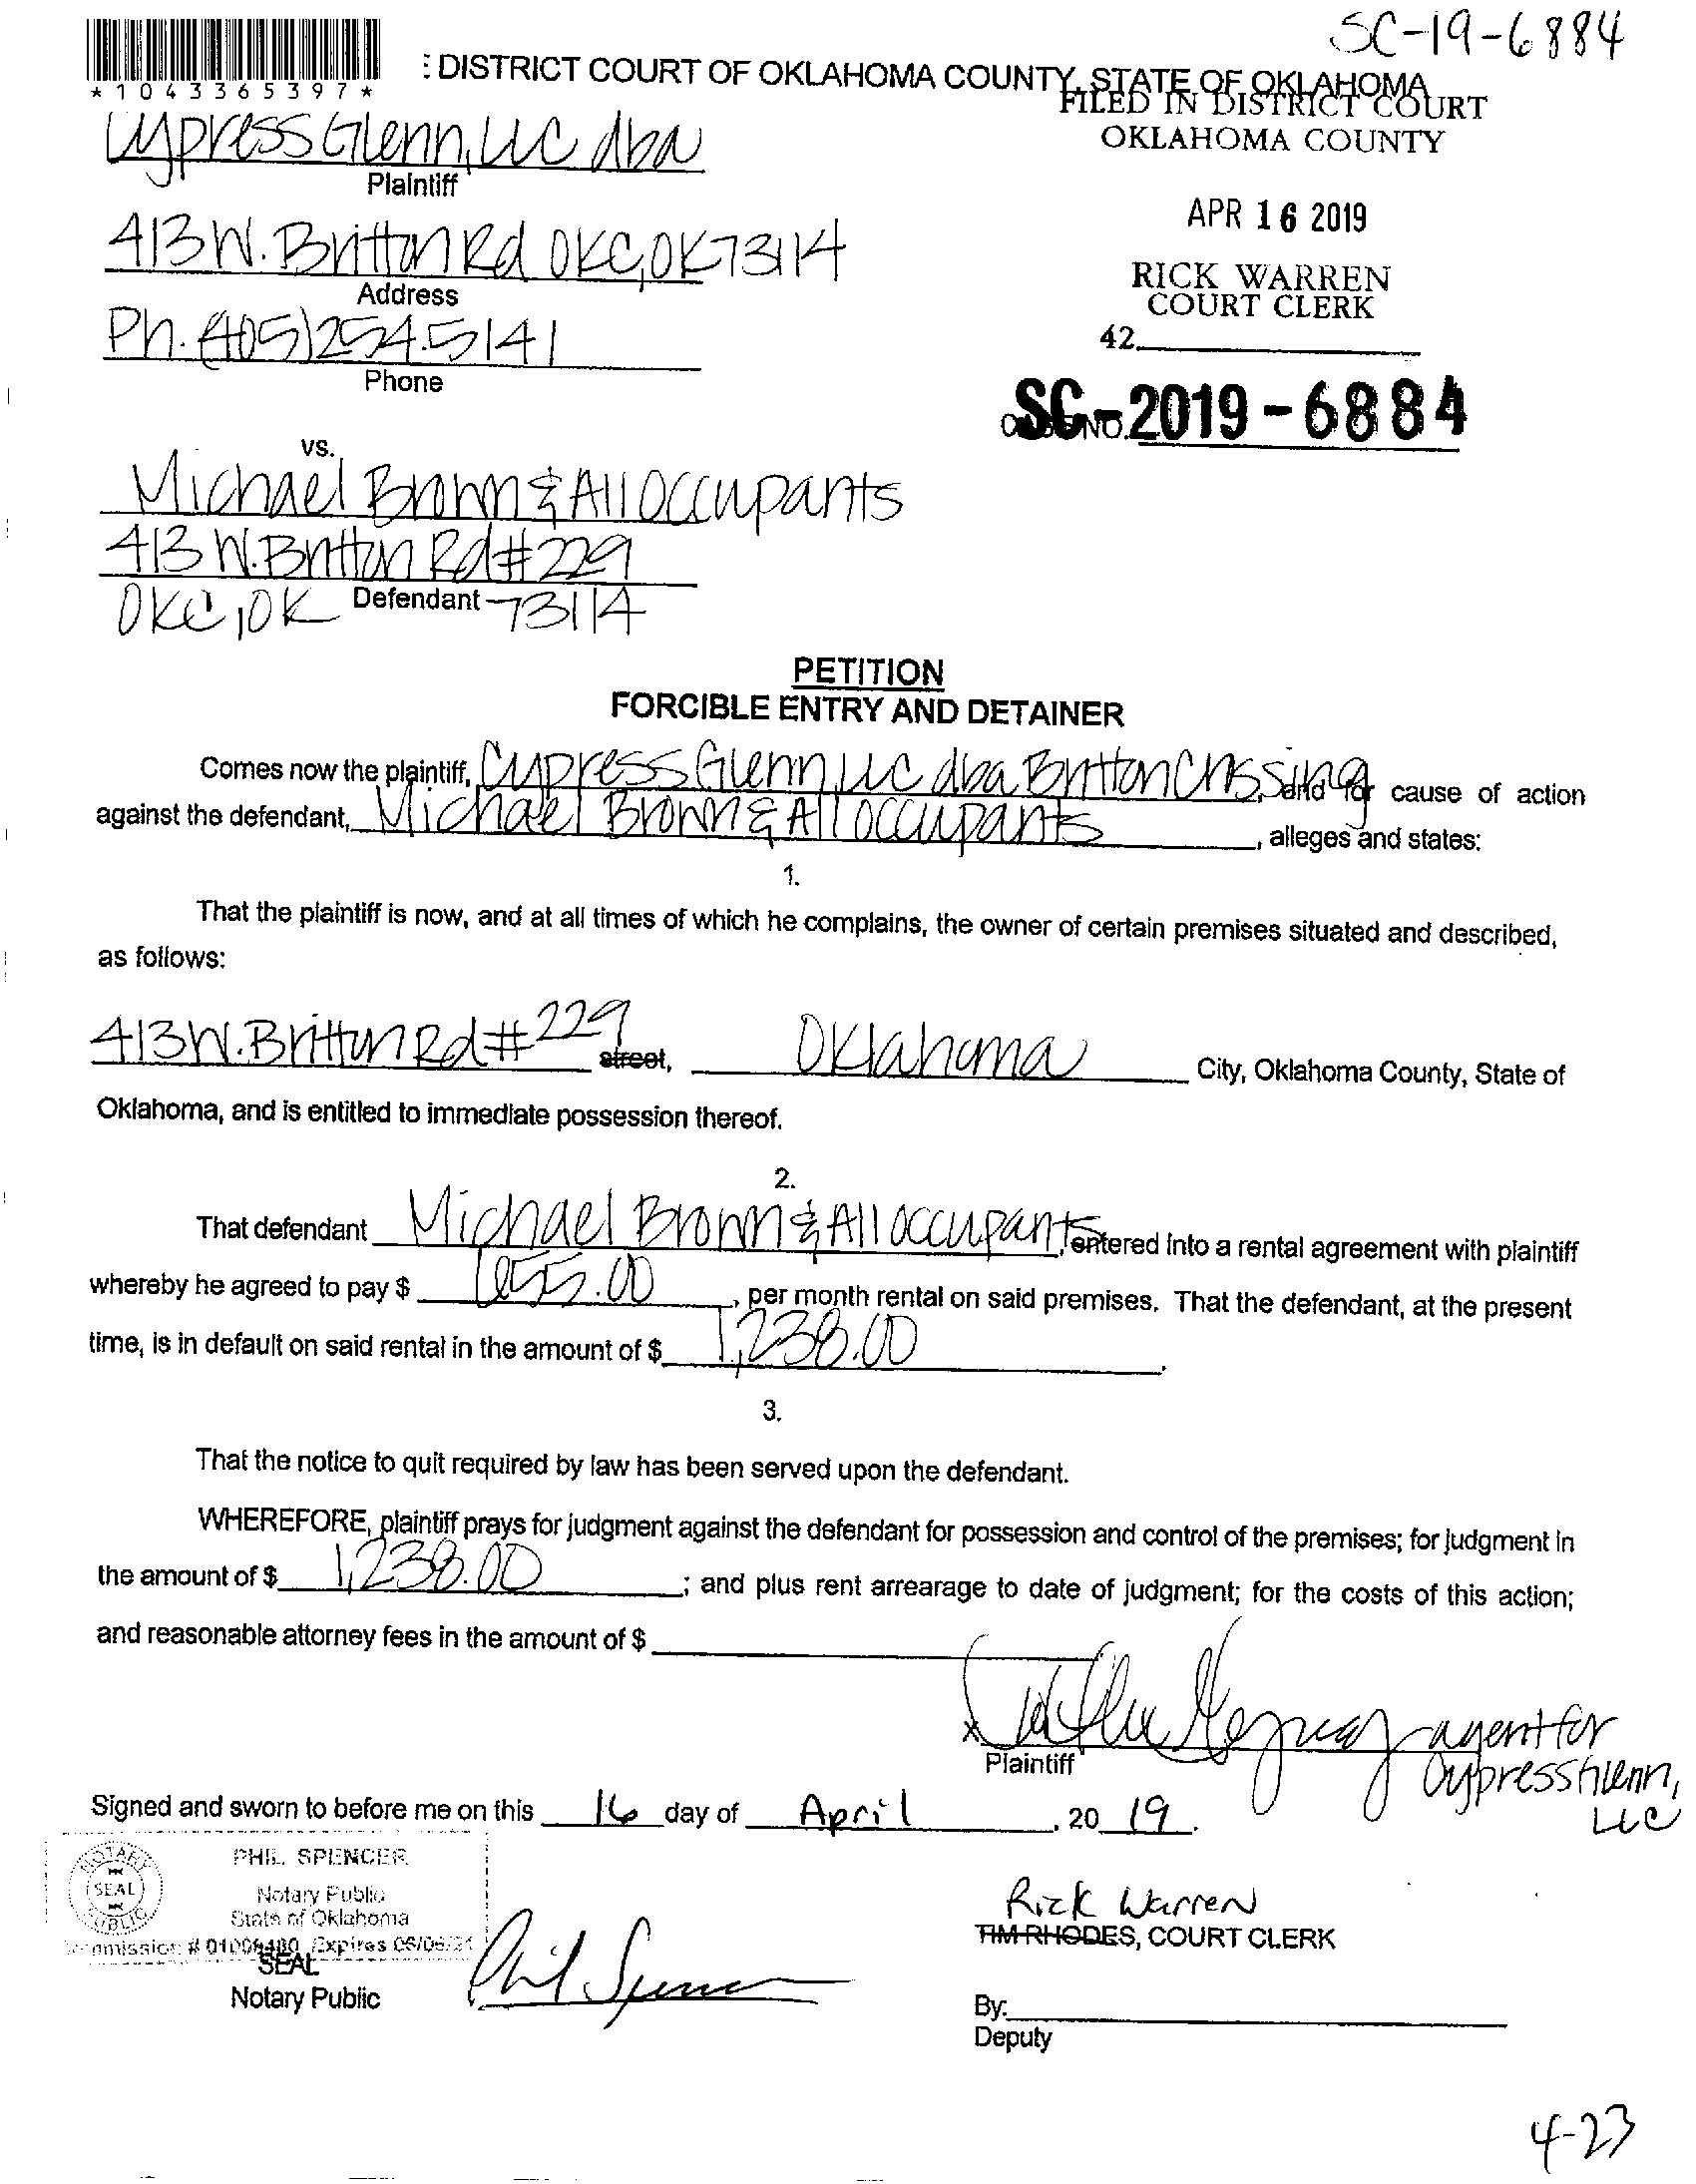 SC-19-6884
* 1 0 4 3 3 6 5 3 9 7 *
: DISTRICT COURT OF OKLAHOMA COUNTY, STATE OF OKLAHOMA
FILED IN DISTRICT COURT
OKLAHOMA COUNTY
Cypress Glenn, LLC dba
Plaintiff
APR 16 2019
413 W. Britton Rd OKC, OK 73114
Address
RICK WARREN
COURT CLERK
Ph. (405) 254.5141
Phone
42
SC-2019-6884
NO.
vs.
Michael Brown & All Occupants
413 W. Britton Rd #229
OKC, OK Defendant - 73114
PETITION
FORCIBLE ENTRY AND DETAINER
Comes now the plaintiff, Cypress Glenn, LLC dba Britton Crossing, and for cause of action
against the defendant, Michael Brown & All Occupants, alleges and states:
1.
That the plaintiff is now, and at all times of which he complains, the owner of certain premises situated and described,
as follows:
413 W. Britton Rd #229 street, Oklahoma City, Oklahoma County, State of
Oklahoma, and is entitled to immediate possession thereof.
2.
That defendant Michael Brown & All Occupants, entered into a rental agreement with plaintiff
whereby he agreed to pay $ 655.00, per month rental on said premises. That the defendant, at the present
time, is in default on said rental in the amount of $ 1,238.00.
3.
That the notice to quit required by law has been served upon the defendant.
WHEREFORE, plaintiff prays for judgment against the defendant for possession and control of the premises; for judgment in
the amount of $ 1,238.00; and plus rent arrearage to date of judgment; for the costs of this action;
and reasonable attorney fees in the amount of $
X agent for
Plaintiff Cypress Glenn,
LLC
Signed and sworn to before me on this 16 day of April, 20 19.
NOTARY SEAL PUBLIC
PHIL SPENCER
Notary Public
State of Oklahoma
Commission # 01006480 Expires 06/06/21
SEAL
Notary Public
Phil Spencer
Rick Warren
TIM RHODES, COURT CLERK
By:
Deputy
4-23